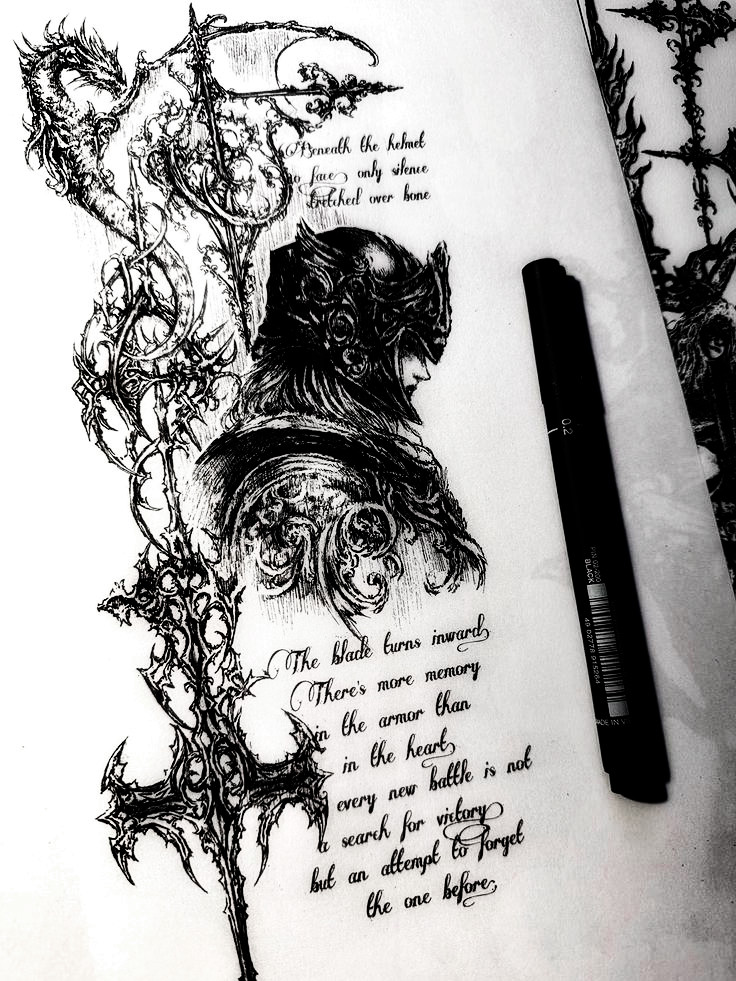 Beneath the helmet
no face only silence
stretched over bone
The blade turns inward
There's more memory
in the armor than
in the heart
every new battle is not
a search for victory
but an attempt to forget
the one before
0.2
BLACK
MADE IN